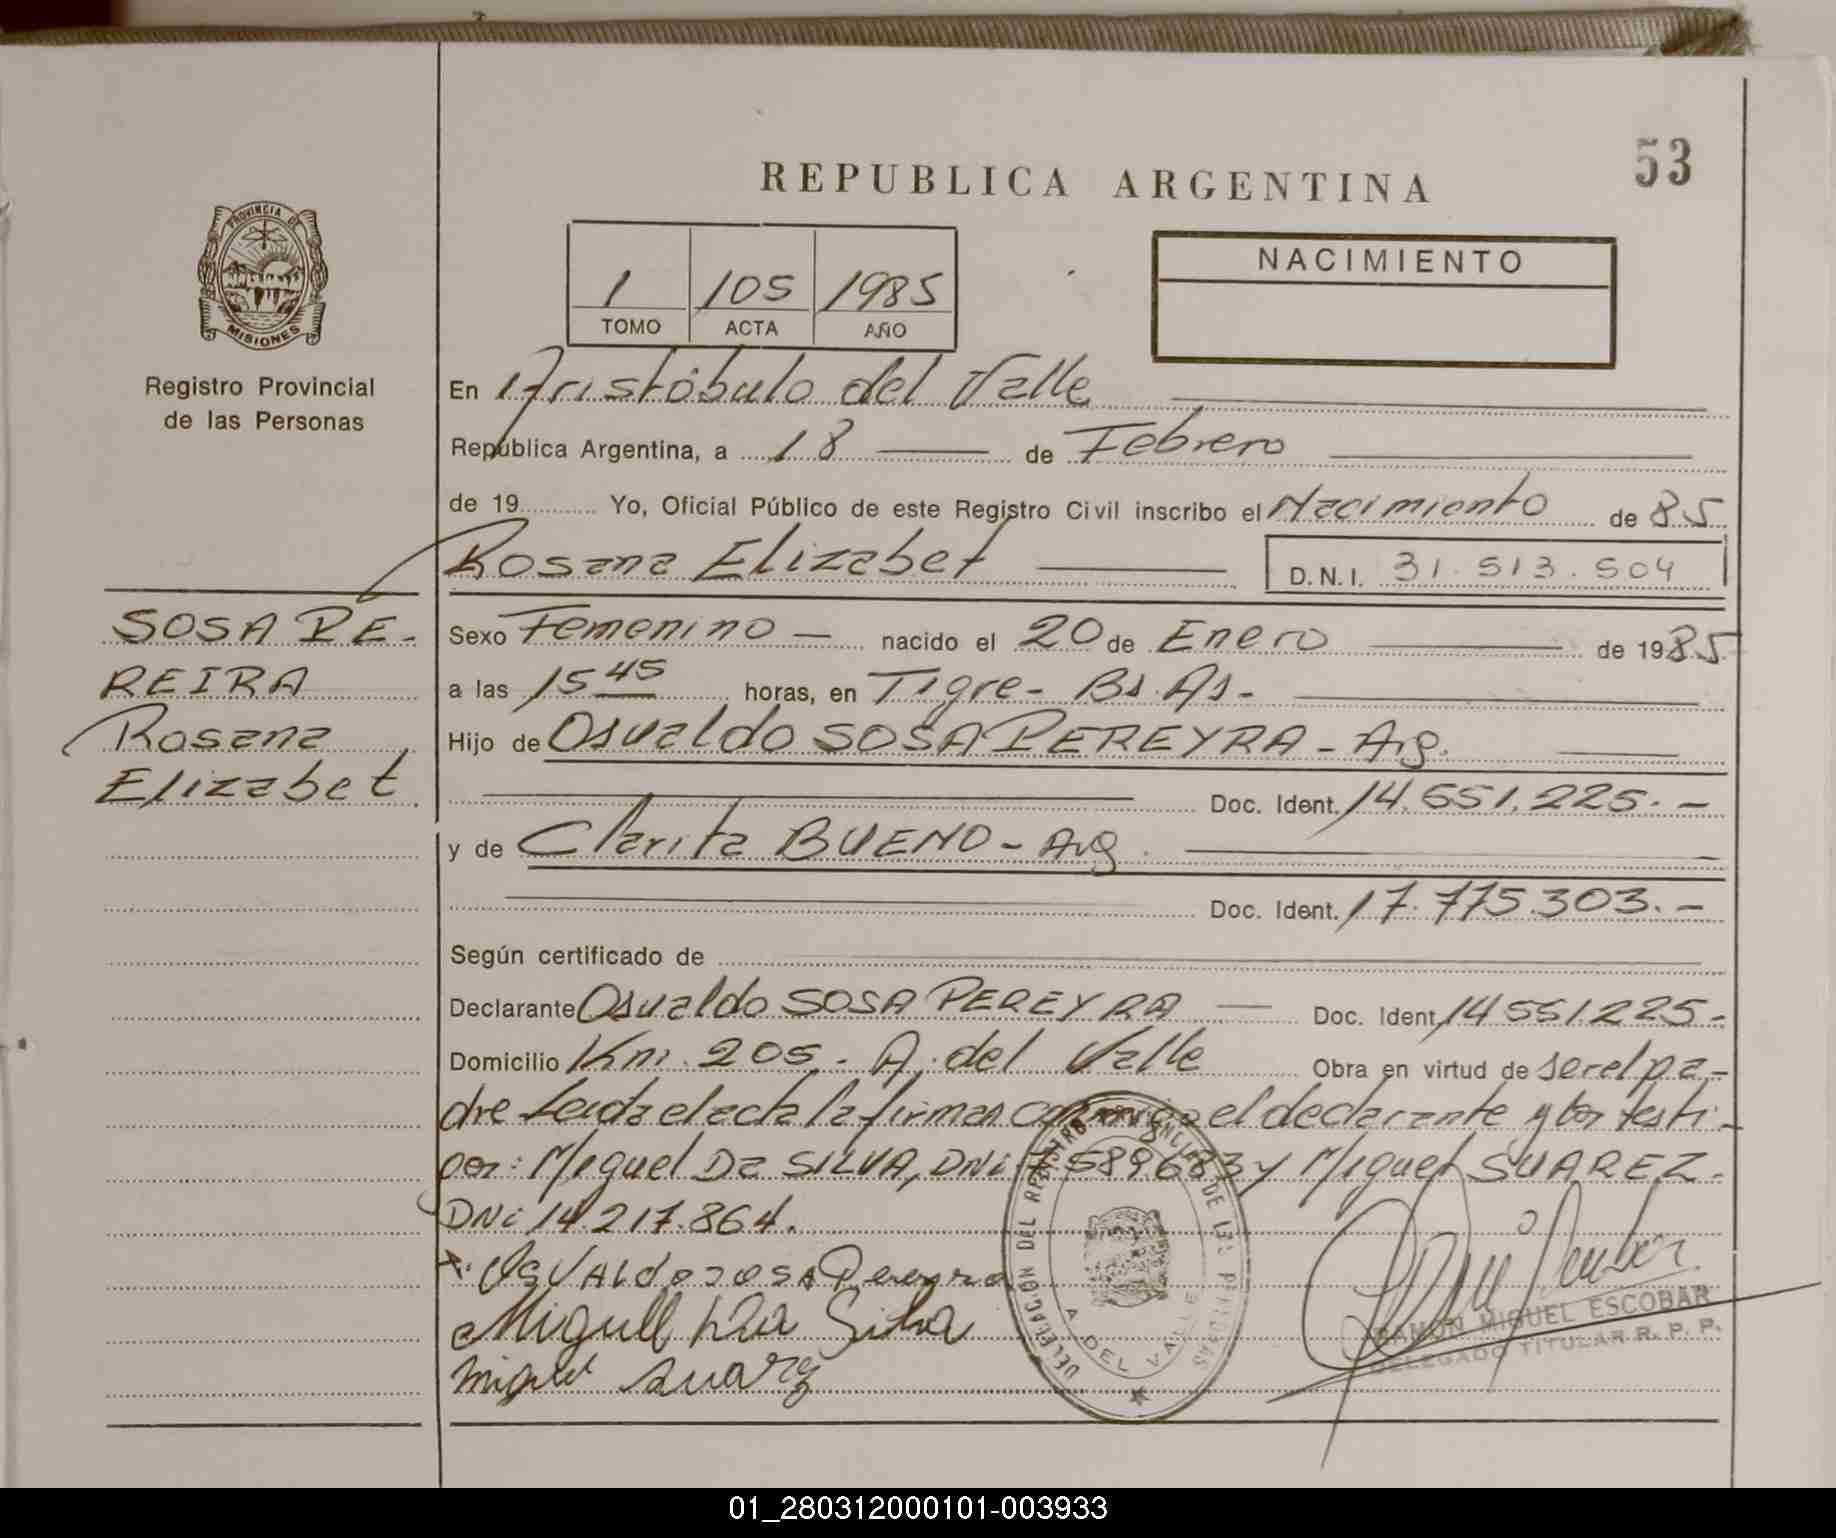 53
REPUBLICA ARGENTINA
PROVINCIA DE
MISIONES
Registro Provincial
de las Personas
1 105 1985
TOMO ACTA AÑO
NACIMIENTO
En Aristóbulo del Valle
República Argentina, a 18 de Febrero
de 19 Yo, Oficial Público de este Registro Civil inscribo el Nacimiento de 85
Rosana Elizabet D.N.I. 31.513.504
SOSA PE-
REIRA
Rosana
Elizabet
Sexo Femenino nacido el 20 de Enero de 1985
a las 15 45 horas, en Tigre - Bs. As -
Hijo de Osvaldo SOSA PEREYRA - Arg.
Doc. Ident. 14.551.225. -
y de Clarita BUENO - Arg.
Doc. Ident. 17.775.303. -
Según certificado de
Declarante Osvaldo SOSA PEREYRA Doc. Ident. 14 551225-
Domicilio Km. 205. A. del Valle Obra en virtud de ser el pa-
dre Leida el acta la firman conmigo el declarante y los testi-
gos: Miguel Da SILVA, DNi 7.589.683 y Miguel SUAREZ.
DNi 14.217.864.
Osvaldo sosa Pereyra
Miguell Da Silva
Miguel Suarez
DELEGACION DEL REGISTRO PROVINCIAL DE LAS PERSONAS
A. DEL VALLE
RAMON MIGUEL ESCOBAR
DELEGADO TITULAR R. P. P.
01_280312000101-003933